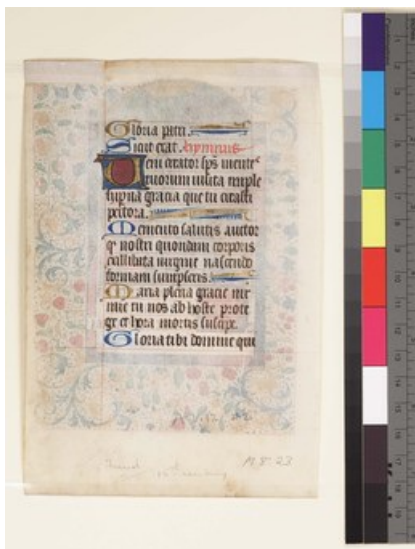 Gloria patri.
Sicut erat. hymnus
Veni creator sps mente
tuorum visita imple
superna gracia que tu creasti
pectora.
Memento salutis auctor
q nostri quondam corporis
exillibata virgine nascendo
formam sumpseris.
Maria plena gracie mr
mie tu nos ab hoste prote
ge et hora mortis suscipe.
Gloria tibi domine qui